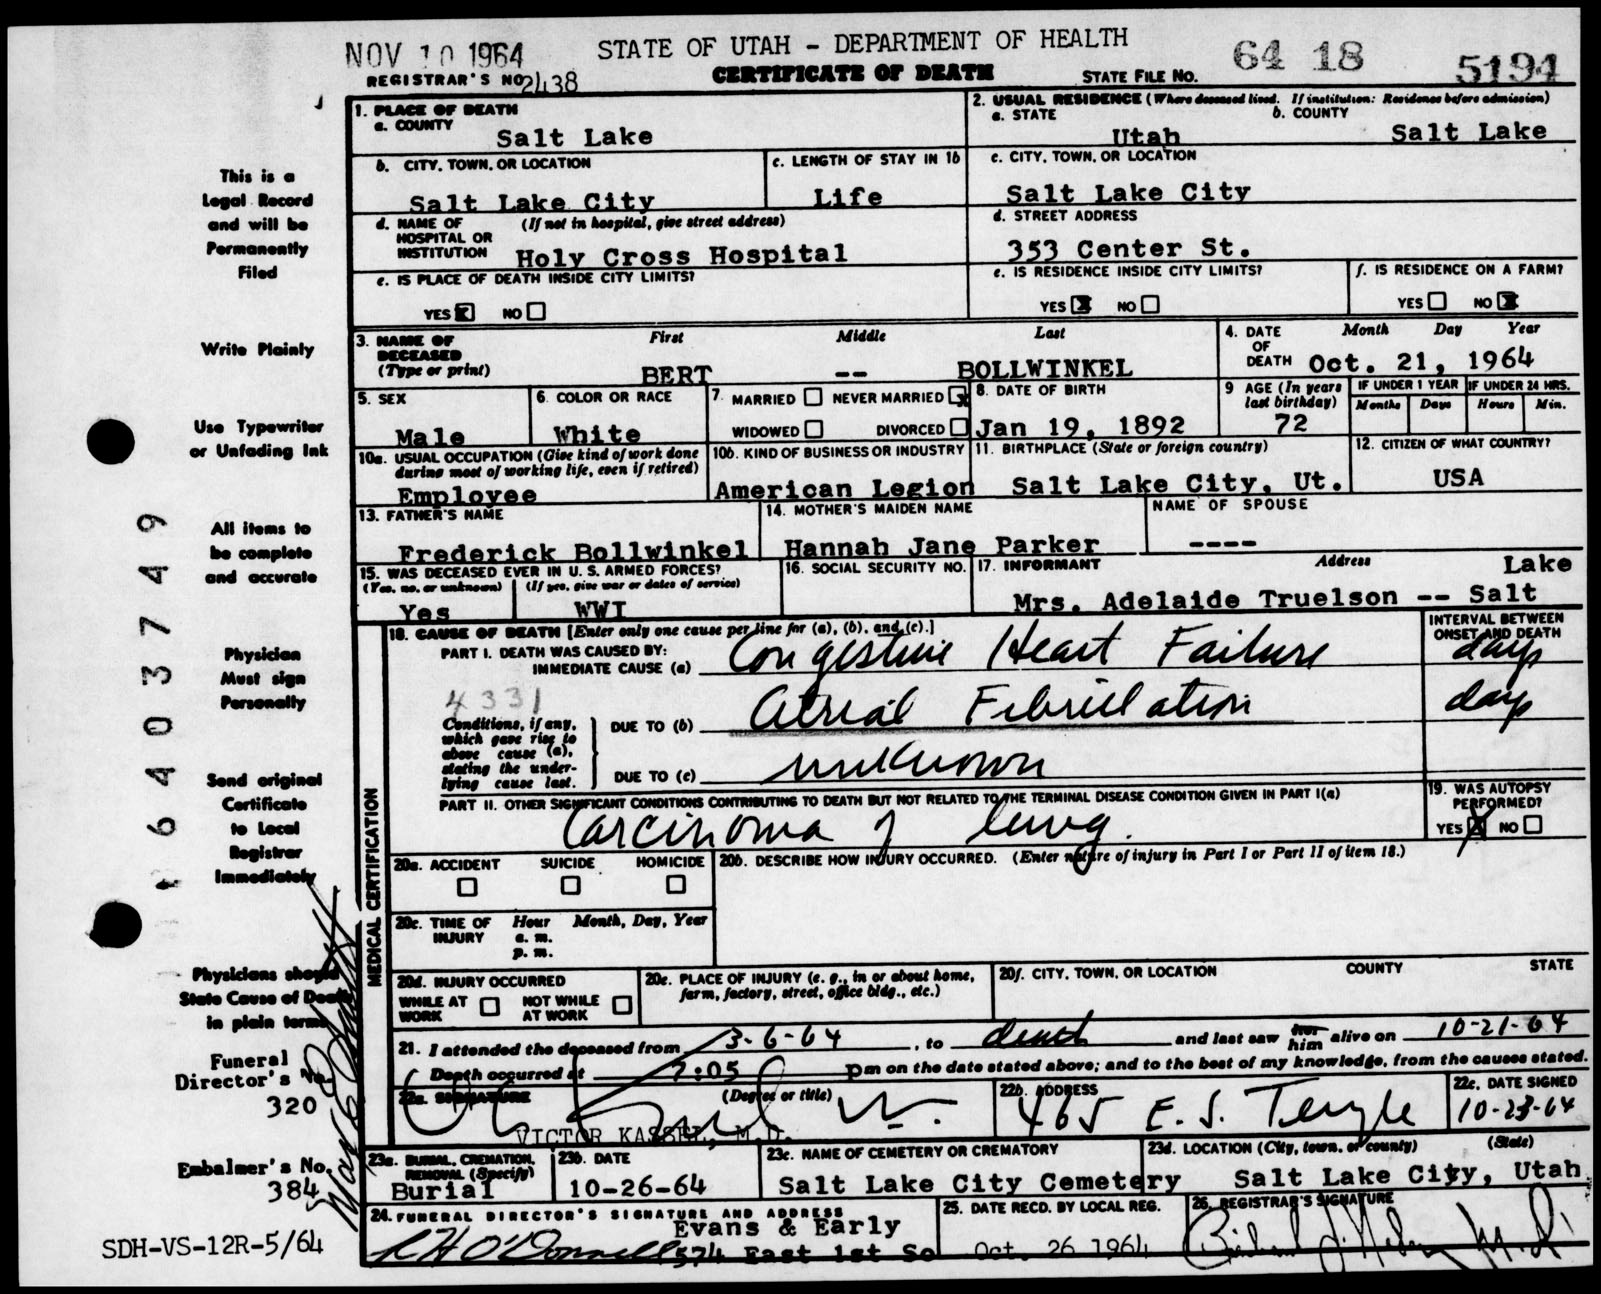 NOV 10 1964 STATE OF UTAH - DEPARTMENT OF HEALTH 64 18 5194
REGISTRAR'S NO 2438 CERTIFICATE OF DEATH STATE FILE NO.
1. PLACE OF DEATH
a. COUNTY Salt Lake
2. USUAL RESIDENCE (Where deceased lived. If institution: Residence before admission)
a. STATE Utah b. COUNTY Salt Lake
b. CITY, TOWN, OR LOCATION Salt Lake City
c. LENGTH OF STAY IN 1b Life
c. CITY, TOWN, OR LOCATION Salt Lake City
d. NAME OF HOSPITAL OR INSTITUTION (If not in hospital, give street address) Holy Cross Hospital
d. STREET ADDRESS 353 Center St.
e. IS PLACE OF DEATH INSIDE CITY LIMITS?
YES X NO
e. IS RESIDENCE INSIDE CITY LIMITS?
YES X NO
f. IS RESIDENCE ON A FARM?
YES NO X
3. NAME OF DECEASED (Type or print)
First Middle Last
BERT -- BOLLWINKEL
4. DATE OF DEATH Month Day Year
Oct. 21, 1964
5. SEX Male
6. COLOR OR RACE White
7. MARRIED NEVER MARRIED X
WIDOWED DIVORCED
8. DATE OF BIRTH Jan 19, 1892
9 AGE (In years last birthday) 72
IF UNDER 1 YEAR Months Days
IF UNDER 24 HRS. Hours Min.
10a. USUAL OCCUPATION (Give kind of work done during most of working life, even if retired)
Employee
10b. KIND OF BUSINESS OR INDUSTRY
American Legion
11. BIRTHPLACE (State or foreign country)
Salt Lake City, Ut.
12. CITIZEN OF WHAT COUNTRY?
USA
13. FATHER'S NAME
Frederick Bollwinkel
14. MOTHER'S MAIDEN NAME
Hannah Jane Parker
NAME OF SPOUSE
----
15. WAS DECEASED EVER IN U. S. ARMED FORCES?
(Yes, no, or unknown) (If yes, give war or dates of service)
Yes WWI
16. SOCIAL SECURITY NO.
17. INFORMANT Address Lake
Mrs. Adelaide Truelson -- Salt
MEDICAL CERTIFICATION
18. CAUSE OF DEATH [Enter only one cause per line for (a), (b), and (c).]
INTERVAL BETWEEN ONSET AND DEATH
PART I. DEATH WAS CAUSED BY:
IMMEDIATE CAUSE (a) Congestive Heart Failure days
4331
Conditions, if any, which gave rise to above cause (a), stating the underlying cause last.
DUE TO (b) Atrial Fibrillation days
DUE TO (c) unknown
PART II. OTHER SIGNIFICANT CONDITIONS CONTRIBUTING TO DEATH BUT NOT RELATED TO THE TERMINAL DISEASE CONDITION GIVEN IN PART I(a)
Carcinoma of lung.
19. WAS AUTOPSY PERFORMED?
YES X NO
20a. ACCIDENT SUICIDE HOMICIDE
20b. DESCRIBE HOW INJURY OCCURRED. (Enter nature of injury in Part I or Part II of item 18.)
20c. TIME OF INJURY Hour Month, Day, Year
a. m.
p. m.
20d. INJURY OCCURRED
WHILE AT WORK NOT WHILE AT WORK
20e. PLACE OF INJURY (e. g., in or about home, farm, factory, street, office bldg., etc.)
20f. CITY, TOWN, OR LOCATION COUNTY STATE
21. I attended the deceased from 3-6-64, to death and last saw her him alive on 10-21-64
Death occurred at 7:05 pm on the date stated above; and to the best of my knowledge, from the causes stated.
22a. SIGNATURE (Degree or title)
VICTOR KASSEL, M.D.
22b. ADDRESS
465 E. S. Temple
22c. DATE SIGNED
10-23-64
23a. BURIAL, CREMATION, REMOVAL (Specify)
Burial
23b. DATE
10-26-64
23c. NAME OF CEMETERY OR CREMATORY
Salt Lake City Cemetery
23d. LOCATION (City, town, or county) (State)
Salt Lake City, Utah
24. FUNERAL DIRECTOR'S SIGNATURE AND ADDRESS
Evans & Early
R H O'Donnell 574 East 1st So
25. DATE RECD. BY LOCAL REG.
Oct. 26 1964
26. REGISTRAR'S SIGNATURE
M.D.
This is a
Legal Record
and will be
Permanently
Filed
Write Plainly
Use Typewriter
or Unfading Ink
All items to
be complete
and accurate
Physician
Must sign
Personally
Send original
Certificate
to Local
Registrar
Immediately
Physicians should
State Cause of Death
in plain terms
Funeral
Director's No.
320
Embalmer's No.
384
SDH-VS-12R-5/64
1 6403749